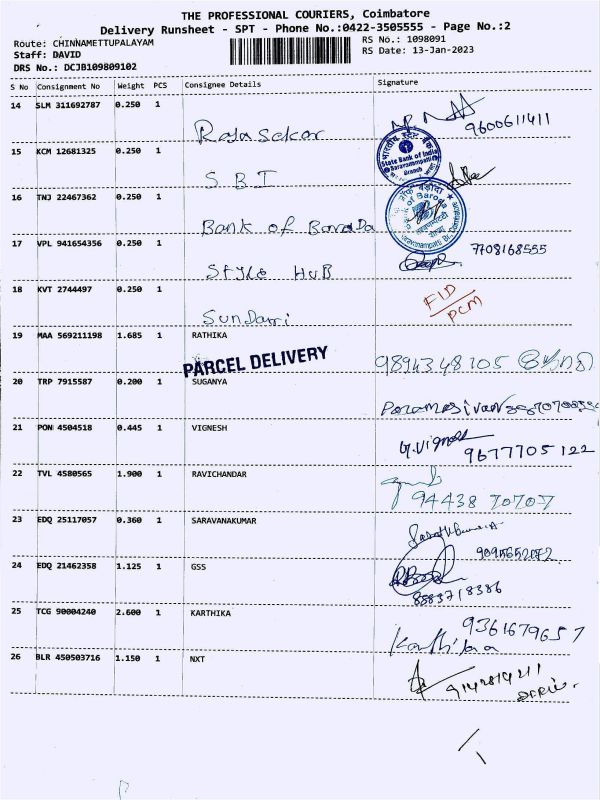 THE PROFESSIONAL COURIERS, Coimbatore
Delivery Runsheet - SPT - Phone No.:0422-3505555 - Page No.:2
Route: CHINNAMETTUPALAYAM
RS No.: 1098091
Staff: DAVID
RS Date: 13-Jan-2023
DRS No.: DCJB109809102
S No Consignment No Weight PCS Consignee Details Signature
14 SLM 311692787 0.250 1
Rajasekar 9600611411
15 KCM 12681325 0.250 1
State Bank of India
Branch
S.B.I
16 TNJ 22467362 0.250 1
Bank of Baroda
17 VPL 941654356 0.250 1
7708168555
Style HuB
18 KVT 2744497 0.250 1
Sundari
19 MAA 569211198 1.685 1 RATHIKA
PARCEL DELIVERY
9894348105
20 TRP 7915587 0.200 1 SUGANYA
21 PON 4504518 0.445 1 VIGNESH
G.Vignesh
9677705122
22 TVL 4580565 1.900 1 RAVICHANDAR
94438 70707
23 EDQ 25117057 0.360 1 SARAVANAKUMAR
24 EDQ 21462358 1.125 1 GSS
8883718386
25 TCG 90004240 2.600 1 KARTHIKA
9361679657
Karthika
26 BLR 450503716 1.150 1 NXT